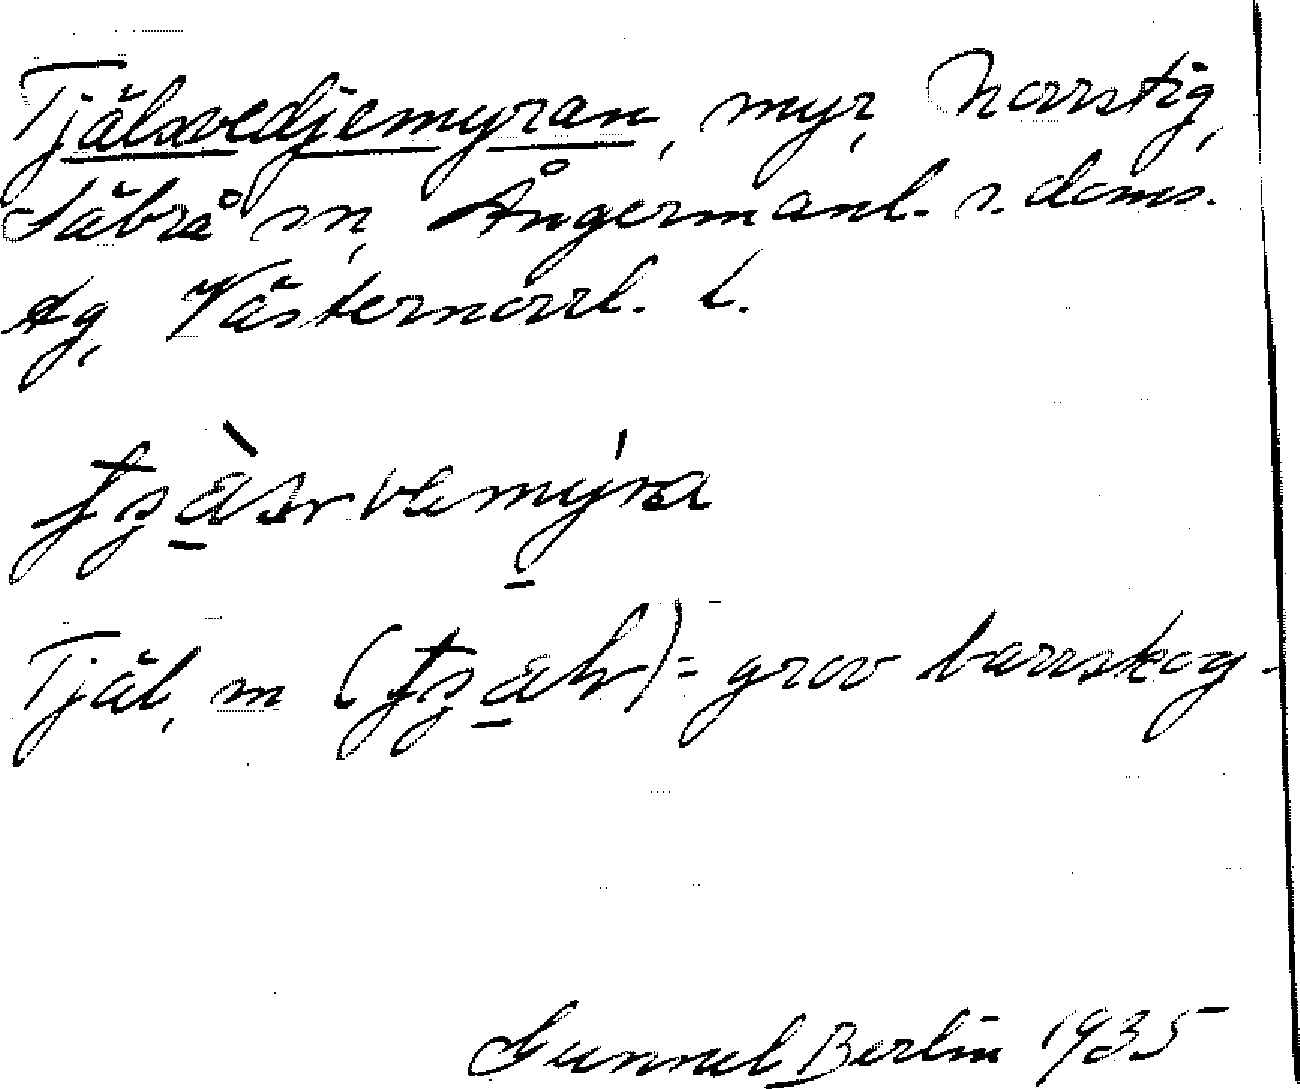 Tjälsvedjemyran, myr, Norrstig,
Säbrå sn, Ångermanl. s. doms.
tg, Västernorrl. l.
Tjäl, m ( ) = grov barrskog.
Gunnel Berlin 1935